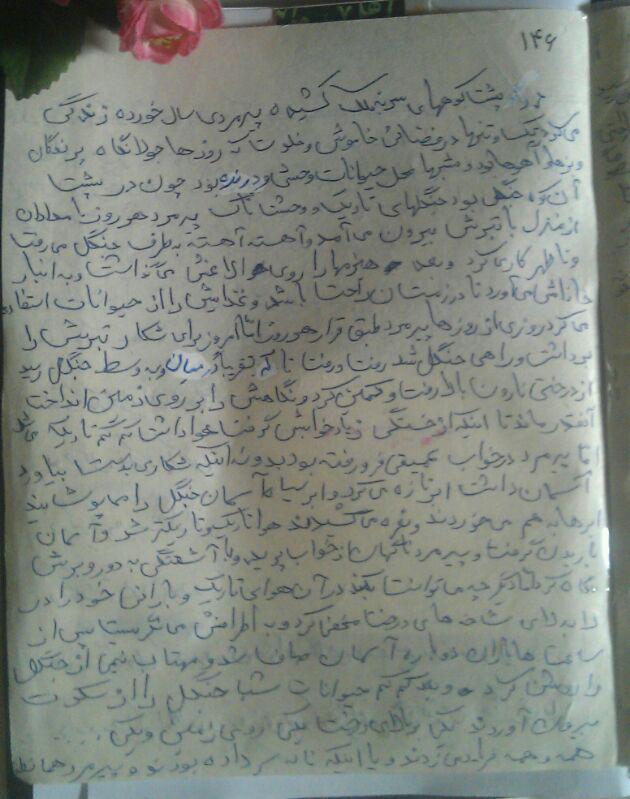 ۱۴۶
در پشت کوههای سر بفلک کشیده پیرمردی سال خورده زندگی
می کرد یک و تنها در فضائی خاموش و خلوت که روزها جولانگاه پرندگان
و شبها محل حیوانات وحشی و درنده بود چون در پشت
آن کوه جنگلی بود جنگلهای تاریک و وحشتناک پیرمرد هر روز بامدادان
از منزل با تبرش بیرون می آمد و آهسته آهسته به طرف جنگل می رفت
و تا ظهر کار می کرد و بعد هیزمها را روی الاغش می گذاشت و به انبار
خانه اش می آورد تا در زمستان راحت باشد و غذایش را از حیوانات استفاده
می کرد روزی از روزها پیرمرد طبق قرار هر روز امروز برای شکار تبرش را
برداشت و راهی جنگل شد رفت و رفت تا که تقریباً در میان و به وسط جنگل رسید
از درختی نارون بالا رفت و کمین کرد و نگاهش را بر روی زمین انداخت
آنقدر ماند تا اینکه از خستگی زیاد خوابش گرفت هوا داشت کم کم تاریک می شد
اما پیرمرد در خواب عمیقی فرو رفته بود بدون اینکه شکاری بدست بیاورد
آسمان داشت ابر تازه می کرد و ابر سیاه آسمان جنگل را می پوشانید
ابرها به هم می خوردند و نعره می کشیدند هوا تاریک و تاریکتر شد و آسمان
باریدن گرفت و پیرمرد ناگهان از خواب پرید و با آشفتگی به دور و برش
نگاه کرد اما دیگر چه می توانست بکند در آن هوای تاریک و بارانی خود را در
لابلای شاخه های درخت مخفی کرد و به اطرافش می نگریست پس از
ساعت ها باران دوباره آسمان صاف شد و مهتاب نیمی از جنگل
را روشن کرد و بعد کم کم حیوانات شب جنگل را از سکوت
بیرون آوردند یکی بالای درخت یکی روی زمین و یکی .....
همه و همه فریاد می زدند و یا اینکه ناله سر داده بودند و پیرمرد همانطور